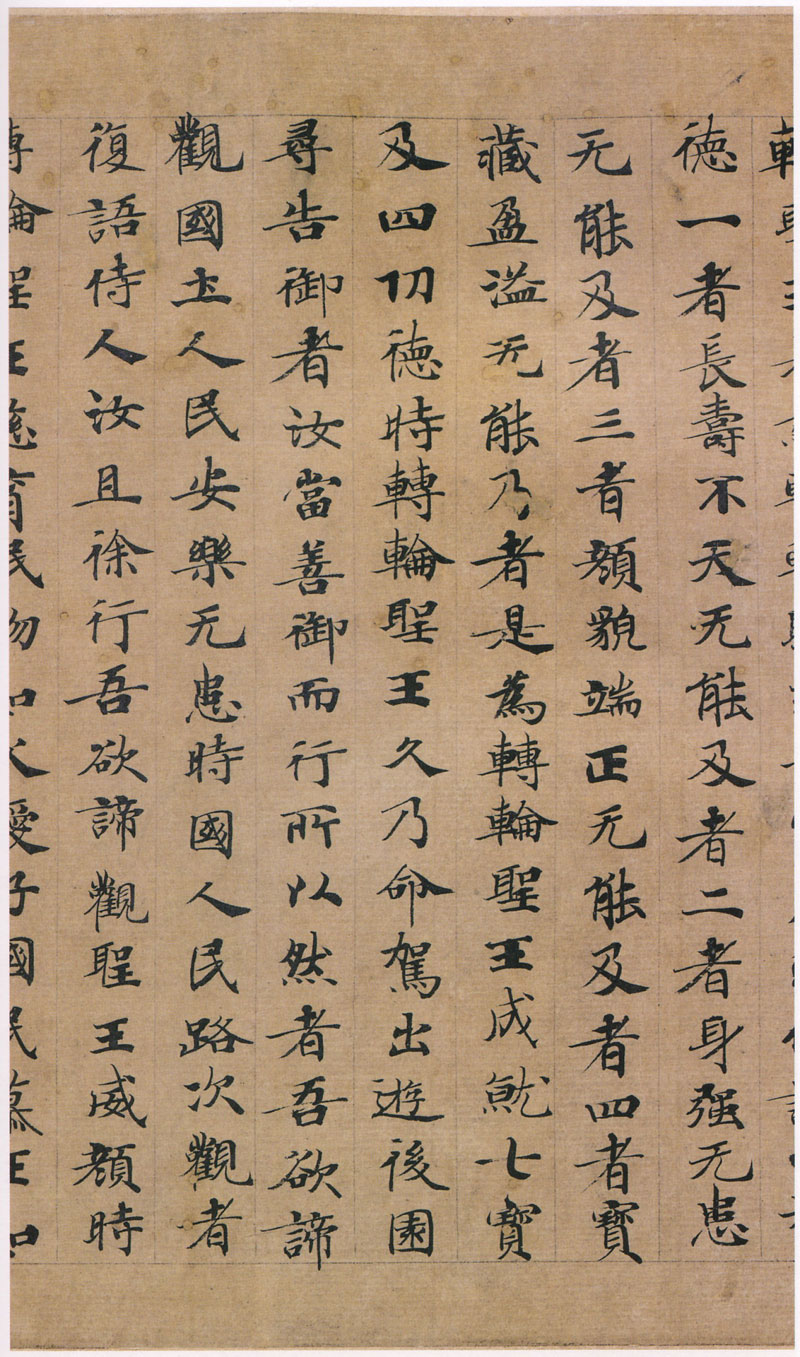 徳一者長壽不夭无能及者二者身强无患
无能及者三者顔貌端正无能及者四者寶
藏盈溢无能乃者是為轉輪聖王成就七寶
及四功徳時轉輪聖王久乃命駕出遊後園
尋告御者汝當善御而行所以然者吾欲諦
觀國土人民安樂无患時國人民路次觀者
復語侍人汝且徐行吾欲諦觀聖王威顔時
轉輪聖王慈育民物如父愛子國民慕王如